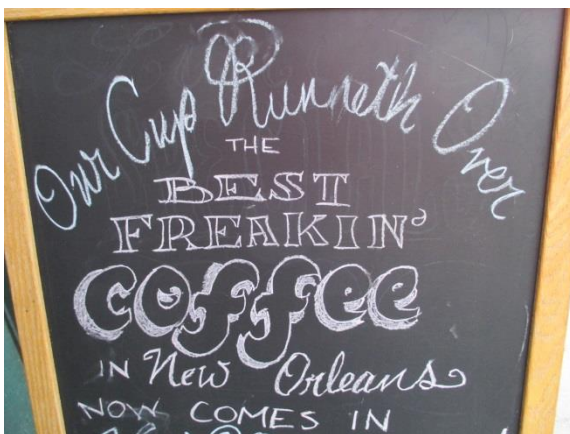 Our Cup Runneth Over
THE
BEST
FREAKIN'
COffee
IN New Orleans
NOW COMES IN